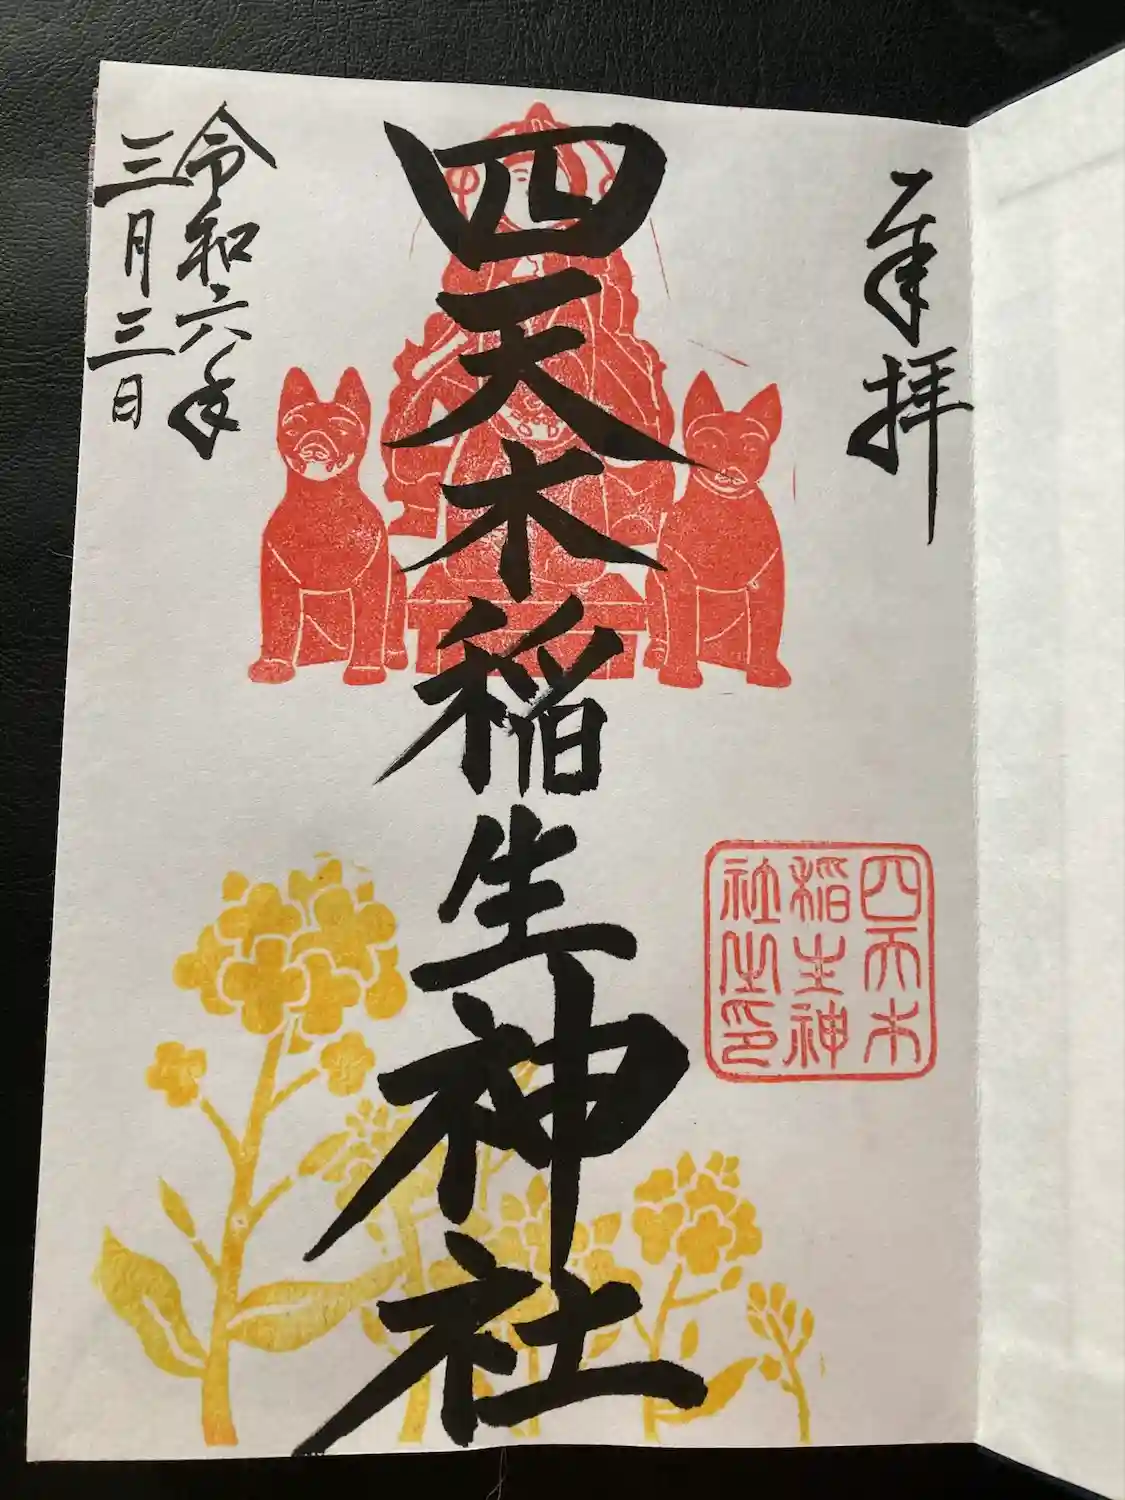 奉拝
四天木稲生神社
四天木
稲生神
社之印
令和六年
三月三日